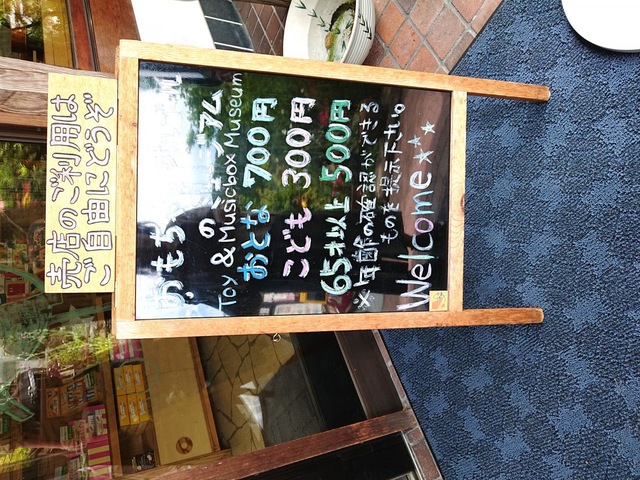 売店のご利用は
ご自由にどうぞ
おもちゃ
のミュージアム
Toy & Musicbox Museum
おとな 700円
こども 300円
65才以上 500円
※年齢の確認ができる
ものを提示下さい。
Welcome